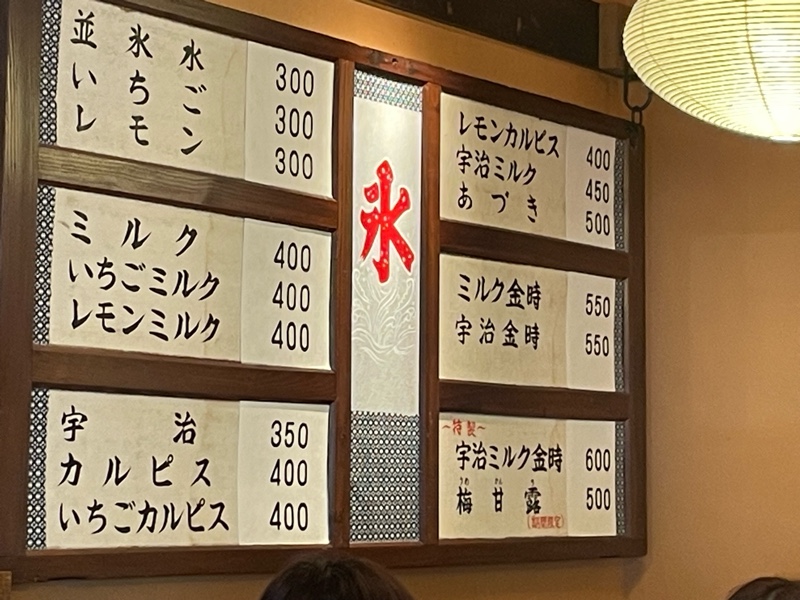 並氷水 300
いちご 300
レモン 300
ミルク 400
いちごミルク 400
レモンミルク 400
宇治 350
カルピス 400
いちごカルピス 400
氷
レモンカルピス 400
宇治ミルク 450
あづき 500
ミルク金時 550
宇治金時 550
～特製～
宇治ミルク金時 600
うめ かん ろ
梅甘露 500
期間限定